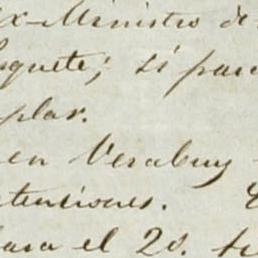 Ex-Ministro de
aquete; si para
plar.
en Veracruz
tenciones.
para el 20.